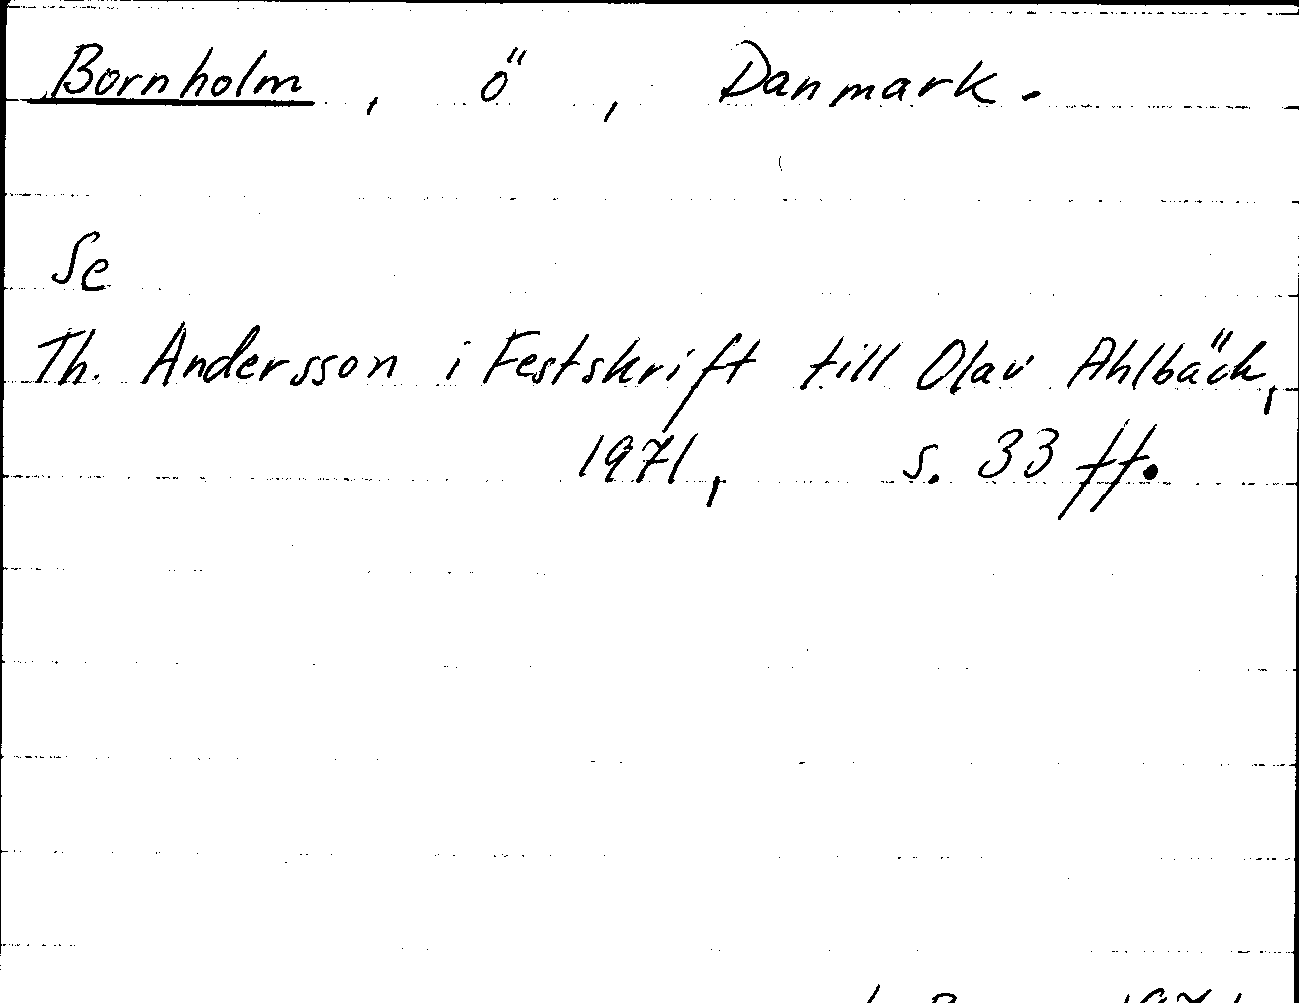 Bornholm, ö, Danmark.
Se
Th. Andersson i Festskrift till Olav Ahlbäck,
1971, s. 33 ff.